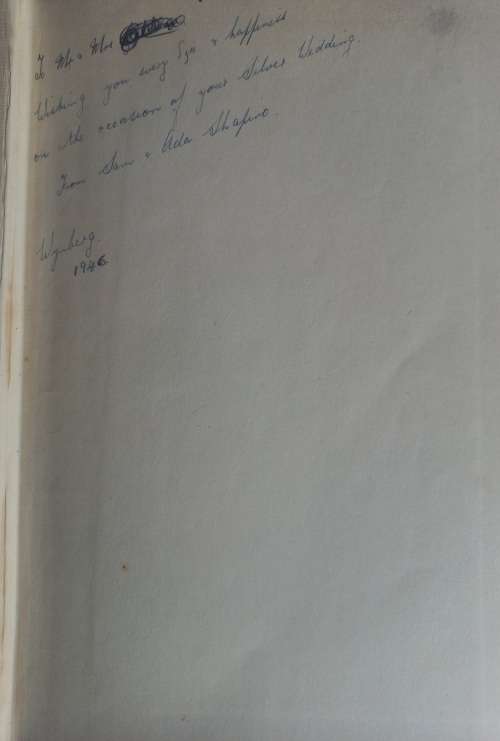 To Mr & Mrs
Wishing you every Joy & happiness
on the occasion of your Silver Wedding.
From Sam & Ada Shapiro.
Wynberg.
1946